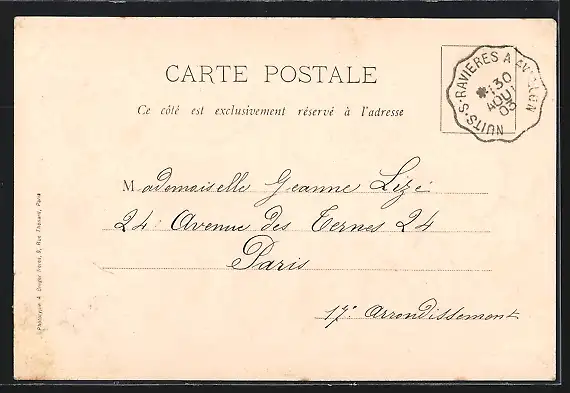 CARTE POSTALE
Ce côté est exclusivement réservé à l'adresse
NUITS-S-RAVIERES A AVALLON
30
AOUT
03
Mademoiselle Jeanne Lizé
24 Avenue des Ternes 24
Paris
17e Arrondissement